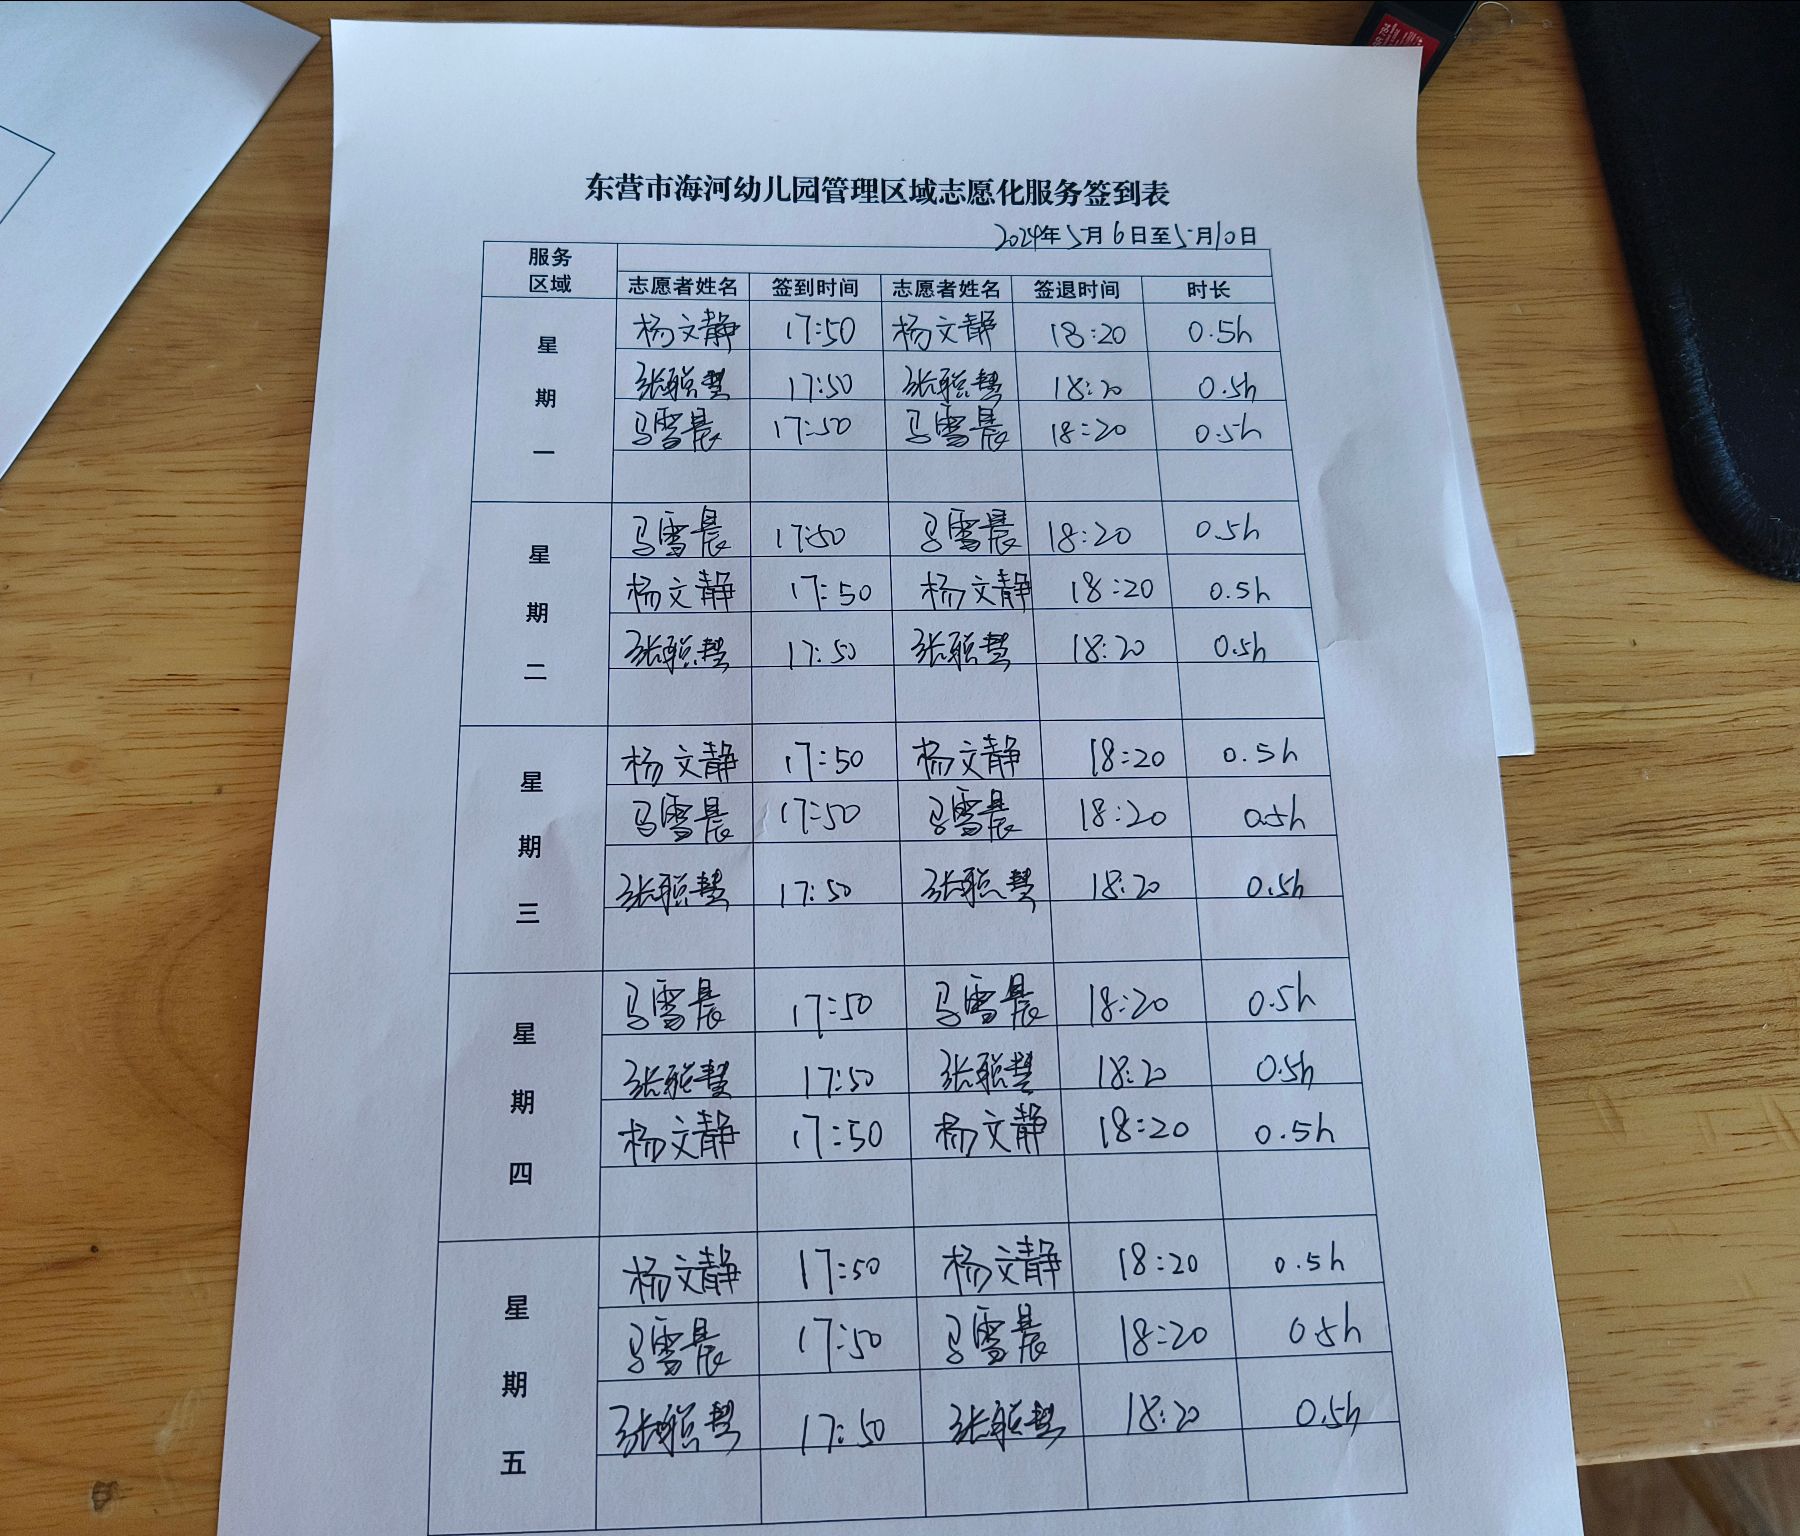 东营市海河幼儿园管理区域志愿化服务签到表
2024年5月6日至5月10日
服务区域
志愿者姓名 签到时间 志愿者姓名 签退时间 时长
星期一
杨文静 17:50 杨文静 18:20 0.5h
张聪慧 17:50 张聪慧 18:20 0.5h
马雪晨 17:50 马雪晨 18:20 0.5h
星期二
马雪晨 17:50 马雪晨 18:20 0.5h
杨文静 17:50 杨文静 18:20 0.5h
张聪慧 17:50 张聪慧 18:20 0.5h
星期三
杨文静 17:50 杨文静 18:20 0.5h
马雪晨 17:50 马雪晨 18:20 0.5h
张聪慧 17:50 张聪慧 18:20 0.5h
星期四
马雪晨 17:50 马雪晨 18:20 0.5h
张聪慧 17:50 张聪慧 18:20 0.5h
杨文静 17:50 杨文静 18:20 0.5h
星期五
杨文静 17:50 杨文静 18:20 0.5h
马雪晨 17:50 马雪晨 18:20 0.5h
张聪慧 17:50 张聪慧 18:20 0.5h